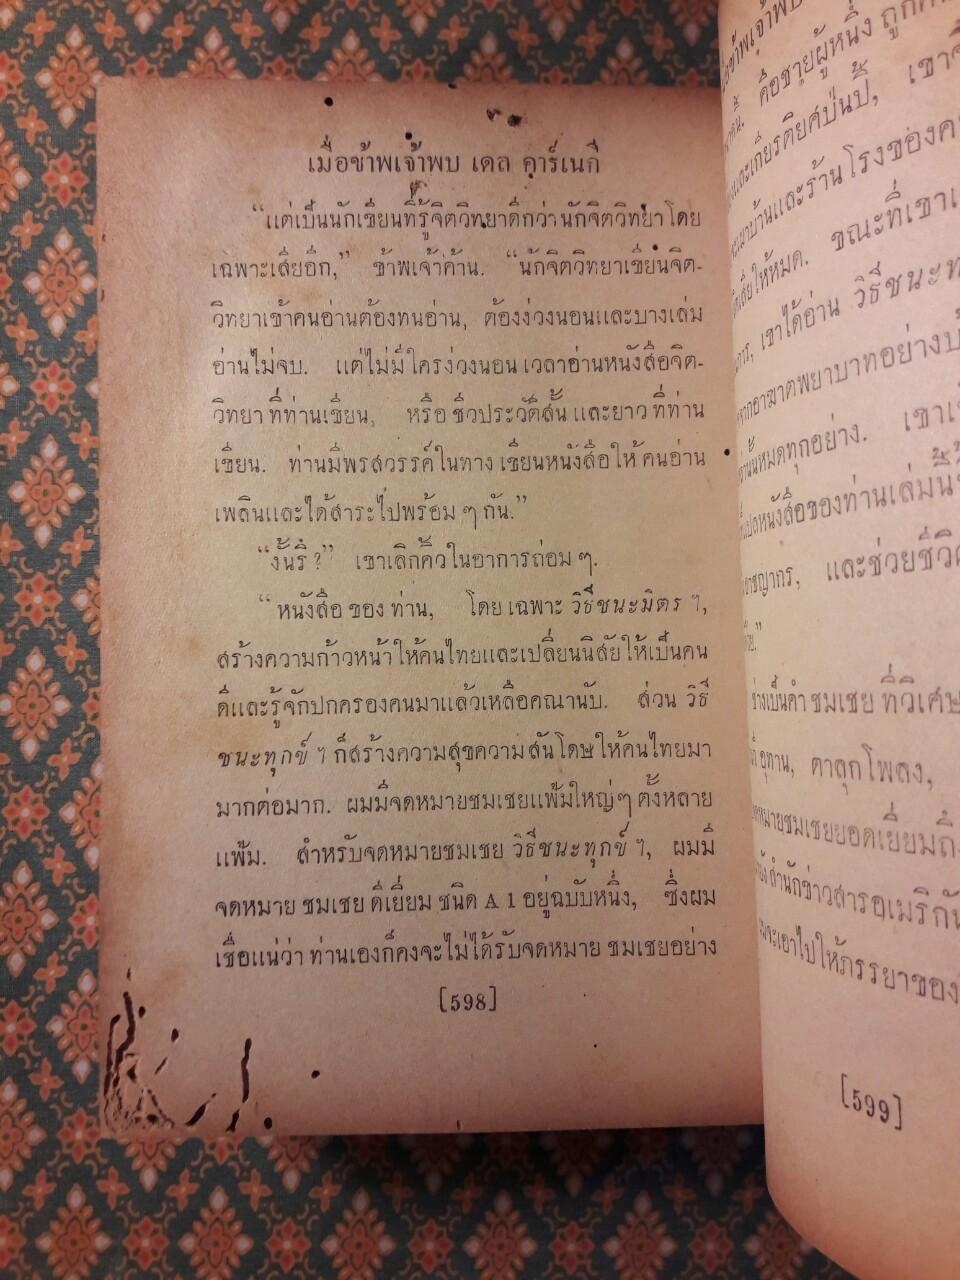 เมื่อข้าพเจ้าพบ เดล คาร์เนกี
“แต่เป็นนักเขียนที่รู้จิตวิทยาดีกว่านักจิตวิทยาโดย
เฉพาะเสียอีก,” ข้าพเจ้าค้าน. “นักจิตวิทยาเขียนจิต-
วิทยาเข้าคนอ่านต้องทนอ่าน, ต้องง่วงนอนและบางเล่ม
อ่านไม่จบ. แต่ไม่มีใครง่วงนอน เวลาอ่านหนังสือจิต-
วิทยา ที่ท่านเขียน, หรือ ชีวประวัติสั้น และยาว ที่ท่าน
เขียน. ท่านมีพรสวรรค์ในทาง เขียนหนังสือให้ คนอ่าน
เพลินและได้สาระไปพร้อม ๆ กัน.”
“งั้นรึ ?” เขาเลิกคิ้วในอาการถ่อม ๆ.
“หนังสือ ของ ท่าน, โดย เฉพาะ วิธีชนะมิตร ฯ,
สร้างความก้าวหน้าให้คนไทยและเปลี่ยนนิสัยให้เป็นคน
ดีและรู้จักปกครองคนมาแล้วเหลือคณานับ. ส่วน วิธี
ชนะทุกข์ ฯ ก็สร้างความสุขความสันโดษให้คนไทยมา
มากต่อมาก. ผมมีจดหมายชมเชยแฟ้มใหญ่ๆ ตั้งหลาย
แฟ้ม. สำหรับจดหมายชมเชย วิธีชนะทุกข์ ฯ, ผมมี
จดหมาย ชมเชย ดีเยี่ยม ชนิด A 1 อยู่ฉบับหนึ่ง, ซึ่งผม
เชื่อแน่ว่า ท่านเองก็คงจะไม่ได้รับจดหมาย ชมเชยอย่าง
[598]
ข้าพเจ้าพบ
คือชายผู้หนึ่ง ถูก
และเกียรติยศป่นปี้, เขา
เผาบ้านและร้านโรงของ
เสียให้หมด. ขณะที่เขา
เขาได้อ่าน วิธีชนะ
อาฆาตพยาบาทอย่าง
หมดทุกอย่าง. เขา
แปลหนังสือของท่านเล่มนี้
และช่วยชีวิต
ช่างเป็นคำ ชมเชย ที่วิเศษ
อุทาน, ตาลุกโพลง,
จดหมายชมเชยยอดเยี่ยม
สำนักข่าวสารอเมริกัน
จะเอาไปให้ภรรยาของ
[599]